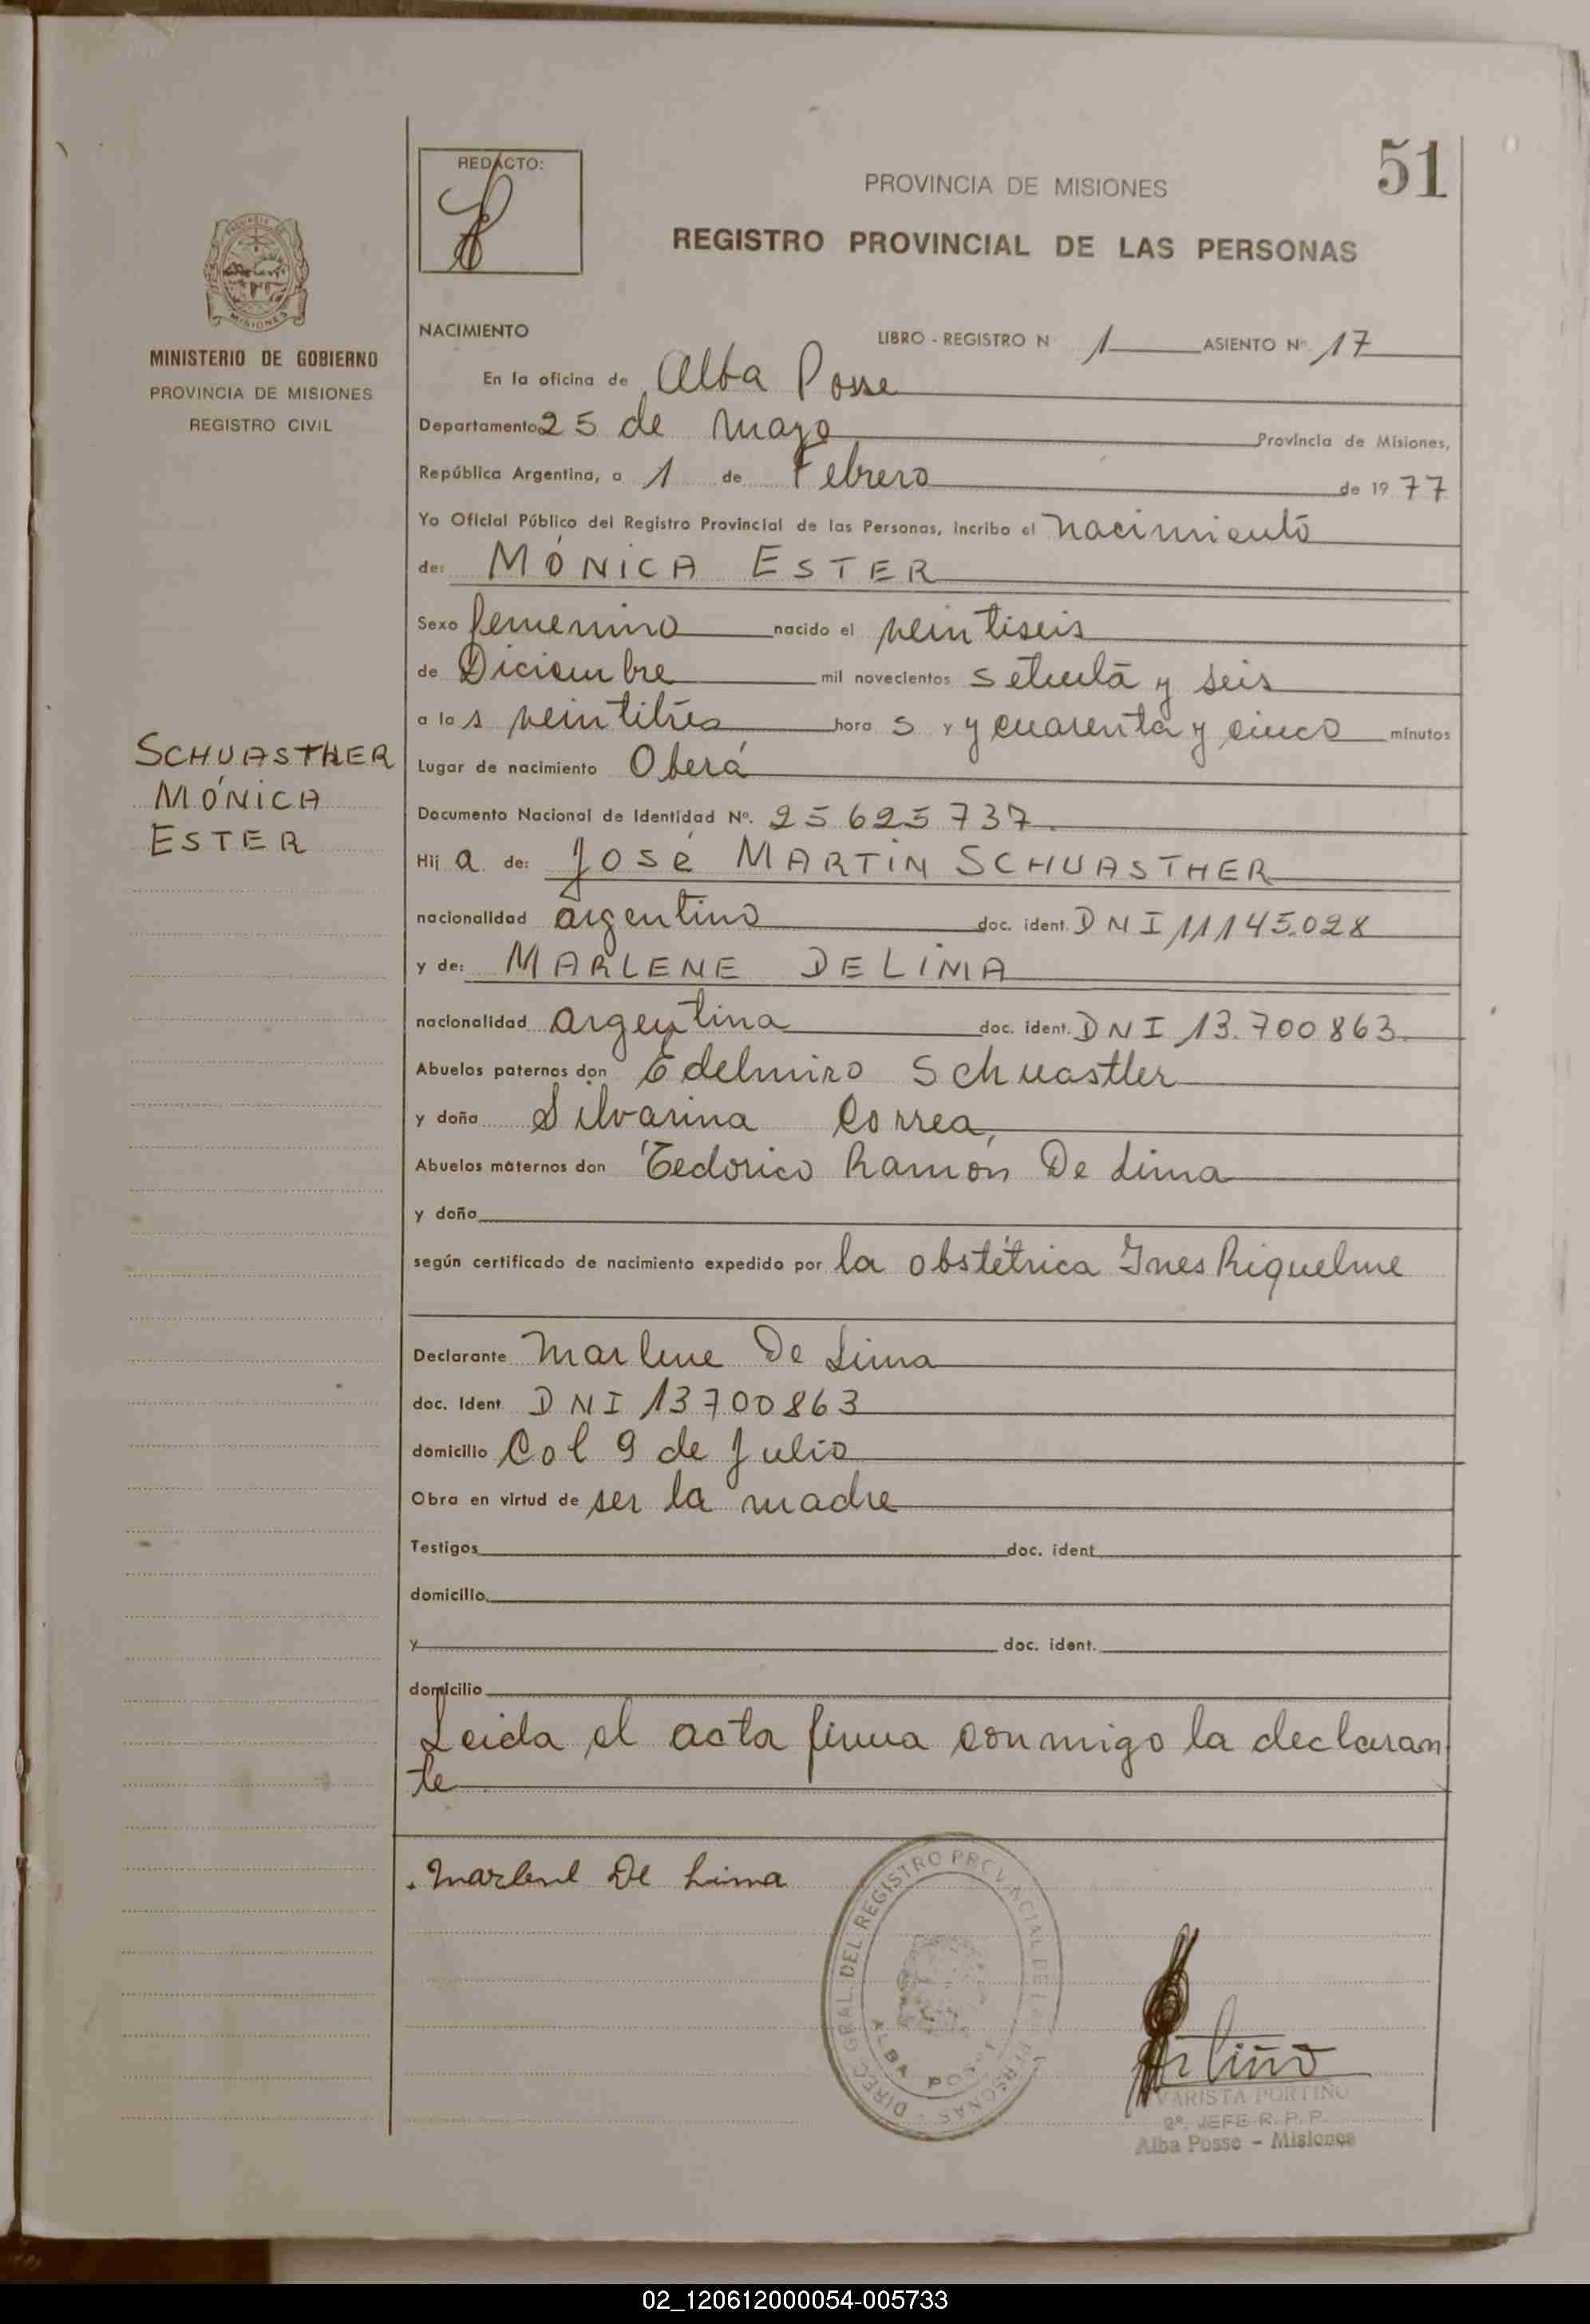 51
REDACTO:
PROVINCIA DE MISIONES
REGISTRO PROVINCIAL DE LAS PERSONAS
MISIONES
MINISTERIO DE GOBIERNO
PROVINCIA DE MISIONES
REGISTRO CIVIL
SCHUASTHER
MÓNICA
ESTER
NACIMIENTO
LIBRO - REGISTRO N 1 ASIENTO Nº 17
En la oficina de Alba Posse
Departamento 25 de Mayo Provincia de Misiones,
República Argentina, a 1 de Febrero de 1977
Yo Oficial Público del Registro Provincial de las Personas, incribo el nacimiento
de: MÓNICA ESTER
Sexo femenino nacido el veintiseis
de Diciembre mil novecientos setenta y seis
a las veintitres horas y y cuarenta y cinco minutos
Lugar de nacimiento Oberá
Documento Nacional de Identidad Nº. 25 625 737.
Hija de: José MARTIN SCHUASTHER
nacionalidad argentino doc. ident. DNI 11145.028
y de: MARLENE DE LIMA
nacionalidad argentina doc. ident. DNI 13.700863.
Abuelos paternos don Edelmiro Schuasther
y doña Silvarina Correa,
Abuelos maternos don Tedorico Ramón De Lima
y doña
según certificado de nacimiento expedido por la obstétrica Ines Riquelme
Declarante Marlene De Lima
doc. Ident. DNI 13700863
domicilio Col 9 de Julio
Obra en virtud de ser la madre
Testigos doc. ident
domicilio
y doc. ident.
domicilio
Leida el acta firma conmigo la declaran
te
Marlene De Lima
DIREC. GRAL. DEL REGISTRO PROVINCIAL DE LAS PERSONAS
ALBA POSSE
VARISTA PORTIÑO
2º. JEFE R. P. P.
Alba Posse - Misiones
02_120612000054-005733